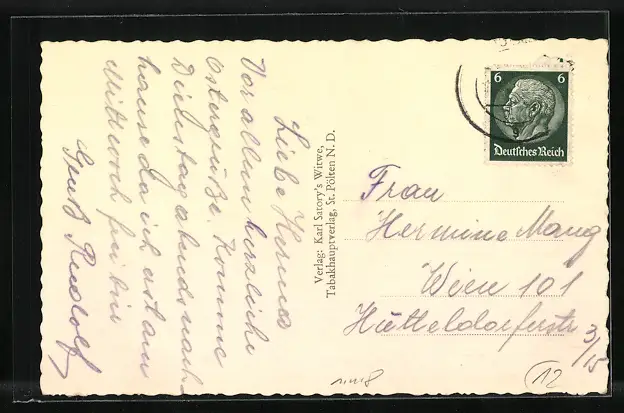 Liebe Herma
Vor allem herzliche
Ostergrüße. Komme
Dienstag abends nach-
hause da ich erst am
Mittwoch frei bin
Gruß Rudolf
Verlag: Karl Satory's Witwe,
Tabakhauptverlag, St. Pölten N. D.
6 6
Deutsches Reich
Frau
Hermine Mang
Wien 101
Hütteldorferstr
3/15
12